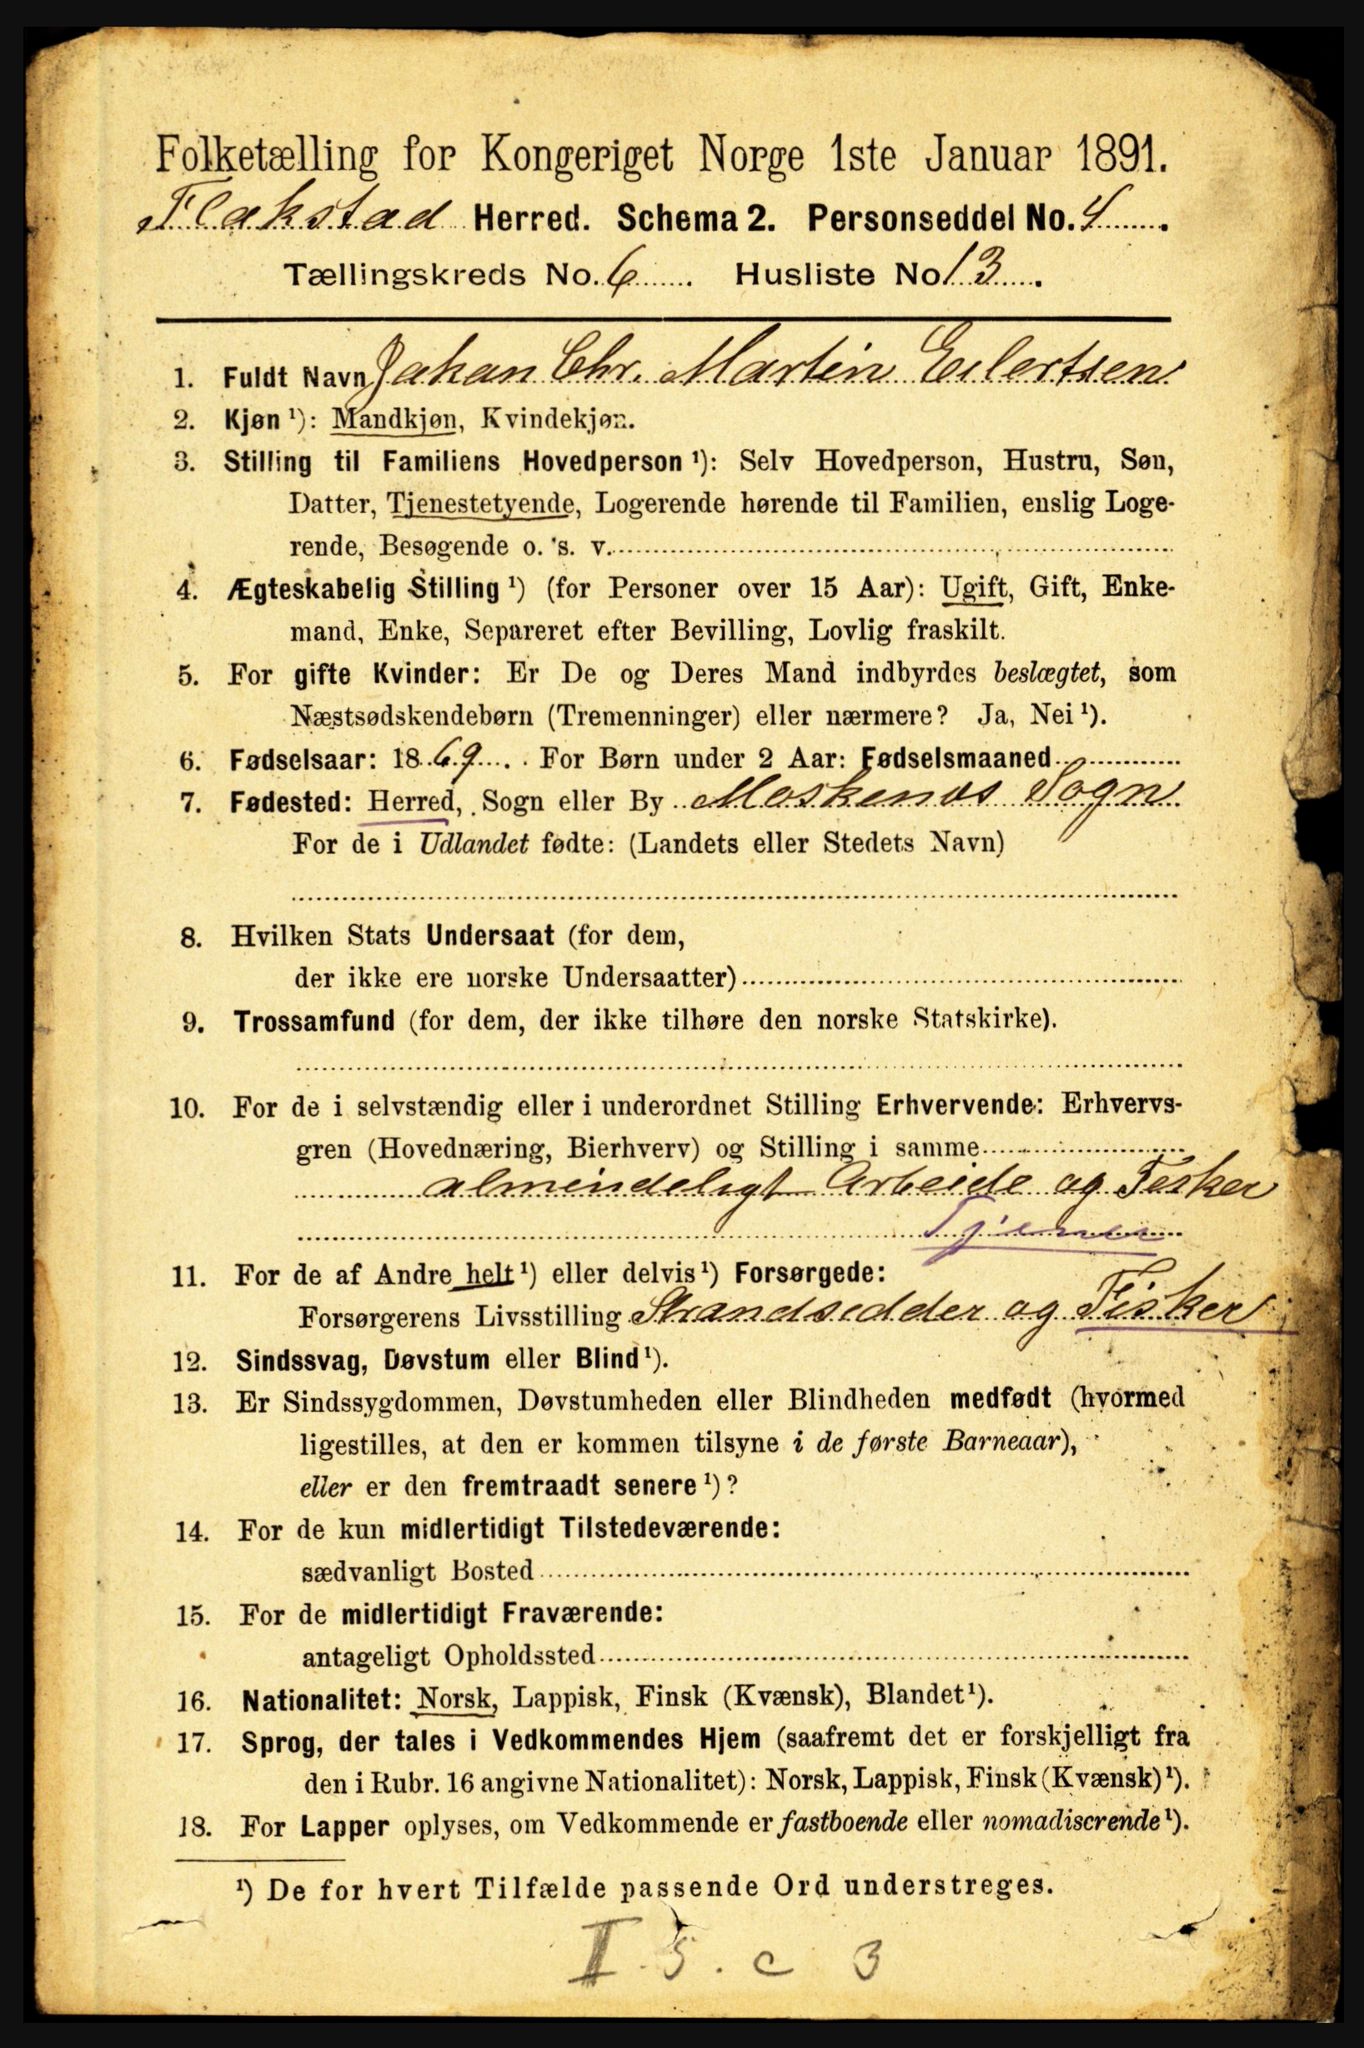 Folketælling for Kongeriget Norge 1ste Januar 1891.
Flakstad Herred. Schema 2. Personseddel No. 4.
Tællingskreds No. 6. Husliste No 13.
1. Fuldt Navn Johan Chr. Martin Eilertsen
2. Kjøn ¹): Mandkjøn, Kvindekjøn.
3. Stilling til Familiens Hovedperson ¹): Selv Hovedperson, Hustru, Søn,
Datter, Tjenestetyende, Logerende hørende til Familien, enslig Loge-
rende, Besøgende o. s. v.
4. Ægteskabelig Stilling ¹) (for Personer over 15 Aar): Ugift, Gift, Enke-
mand, Enke, Separeret efter Bevilling, Lovlig fraskilt.
5. For gifte Kvinder: Er De og Deres Mand indbyrdes beslægtet, som
Næstsødskendebørn (Tremenninger) eller nærmere? Ja, Nei ¹).
6. Fødselsaar: 1869. For Børn under 2 Aar: Fødselsmaaned
7. Fødested: Herred, Sogn eller By Moskenes Sogn
For de i Udlandet fødte: (Landets eller Stedets Navn)
8. Hvilken Stats Undersaat (for dem,
der ikke ere norske Undersaatter)
9. Trossamfund (for dem, der ikke tilhøre den norske Statskirke).
10. For de i selvstændig eller i underordnet Stilling Erhvervende: Erhvervs-
gren (Hovednæring, Bierhverv) og Stilling i samme
almindeligt Arbeide og Fisker
Tjener
11. For de af Andre helt ¹) eller delvis ¹) Forsørgede:
Forsørgerens Livsstilling Strandsidder og Fisker
12. Sindssvag, Døvstum eller Blind ¹).
13. Er Sindssygdommen, Døvstumheden eller Blindheden medfødt (hvormed
ligestilles, at den er kommen tilsyne i de første Barneaar),
eller er den fremtraadt senere ¹)?
14. For de kun midlertidigt Tilstedeværende:
sædvanligt Bosted
15. For de midlertidigt Fraværende:
antageligt Opholdssted
16. Nationalitet: Norsk, Lappisk, Finsk (Kvænsk), Blandet ¹).
17. Sprog, der tales i Vedkommendes Hjem (saafremt det er forskjelligt fra
den i Rubr. 16 angivne Nationalitet): Norsk, Lappisk, Finsk (Kvænsk) ¹).
18. For Lapper oplyses, om Vedkommende er fastboende eller nomadiserende ¹).
¹) De for hvert Tilfælde passende Ord understreges.
II. 5. c 3